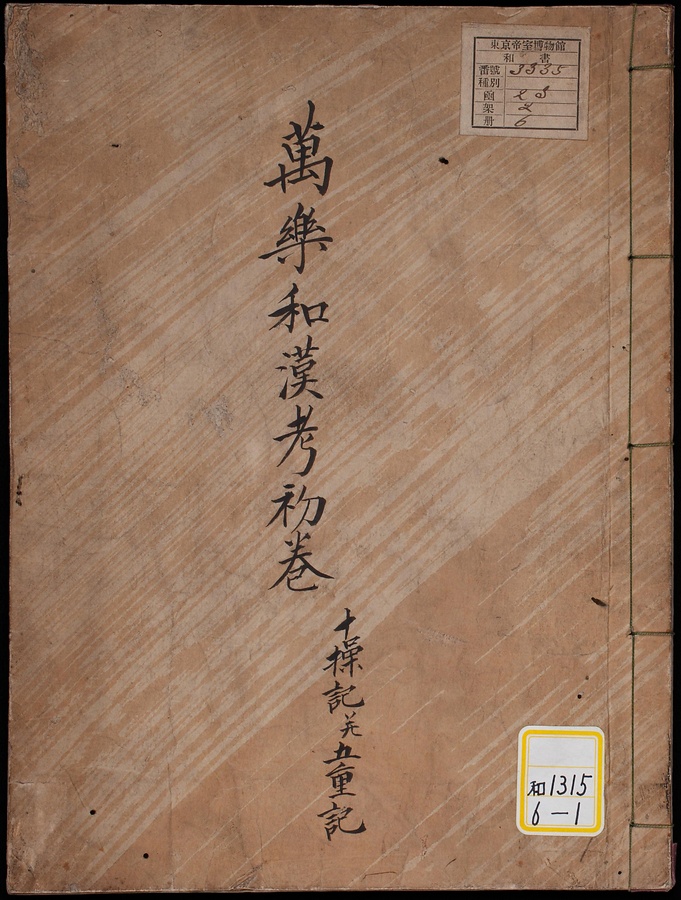 東京帝室博物館
和書
番號 3335
種別
凾 23
架 2
册 6
萬樂和漢考初巻
十操記并五重記
和1315
6-1